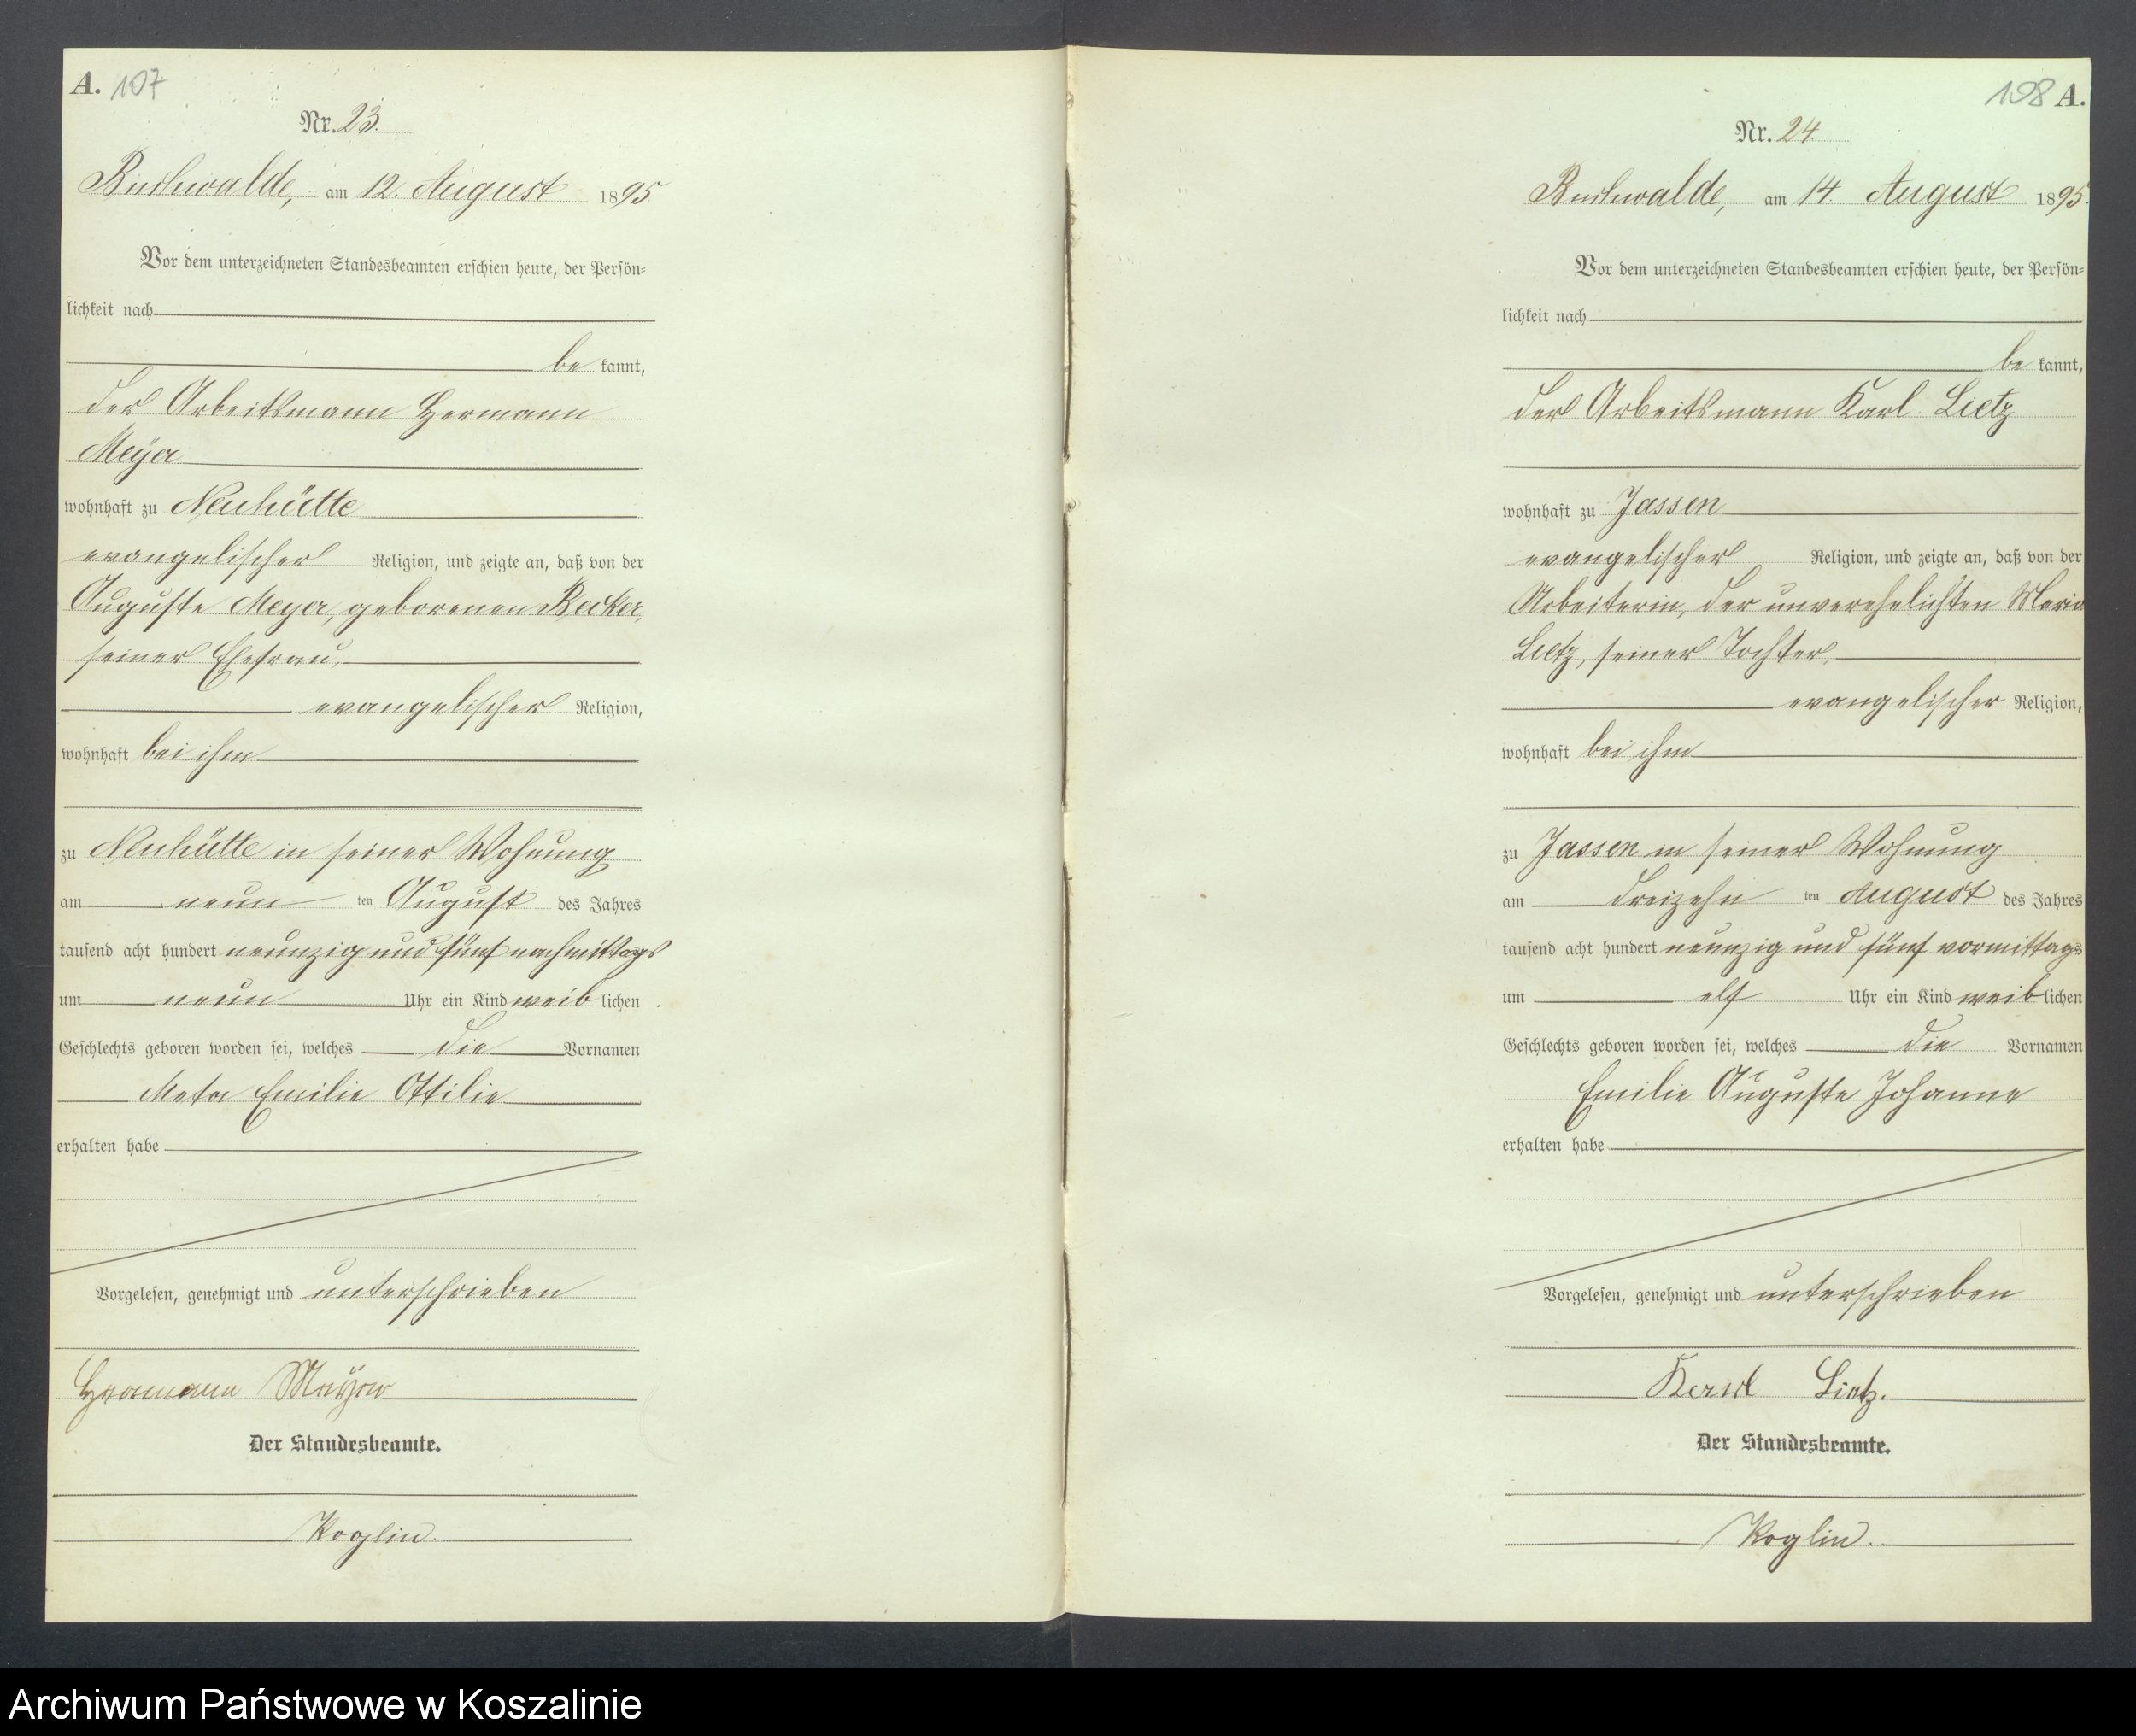 A. 107
Nr. 23.
Buchwalde, am 12. August 1895
Vor dem unterzeichneten Standesbeamten erschien heute, der Persön-
lichkeit nach
be kannt,
der Arbeitsmann Hermann
Meyer
wohnhaft zu Neuhütte
evangelischer Religion, und zeigte an, daß von der
Auguste Meyer, geborenen Becker,
seiner Ehefrau,
evangelischer Religion,
wohnhaft bei ihm
zu Neuhütte in seiner Wohnung
am neun ten August des Jahres
tausend acht hundert neunzig und fünf nachmittags
um neun Uhr ein Kind weib lichen
Geschlechts geboren worden sei, welches die Vornamen
Meta Emilie Ottilie
erhalten habe
Vorgelesen, genehmigt und unterschrieben
Hermann Meyer
Der Standesbeamte.
Koglin.
108 A.
Nr. 24.
Buchwalde, am 14. August 1895.
Vor dem unterzeichneten Standesbeamten erschien heute, der Persön-
lichkeit nach
be kannt,
der Arbeitsmann Karl Lietz
wohnhaft zu Jassen
evangelischer Religion, und zeigte an, daß von der
Arbeiterin, der unverehelichten Marie
Lietz, seiner Tochter,
evangelischer Religion,
wohnhaft bei ihm
zu Jassen in seiner Wohnung
am dreizehn ten August des Jahres
tausend acht hundert neunzig und fünf vormittags
um elf Uhr ein Kind weib lichen
Geschlechts geboren worden sei, welches die Vornamen
Emilie Auguste Johanne
erhalten habe
Vorgelesen, genehmigt und unterschrieben
Karl Lietz.
Der Standesbeamte.
Koglin.
Archiwum Państwowe w Koszalinie